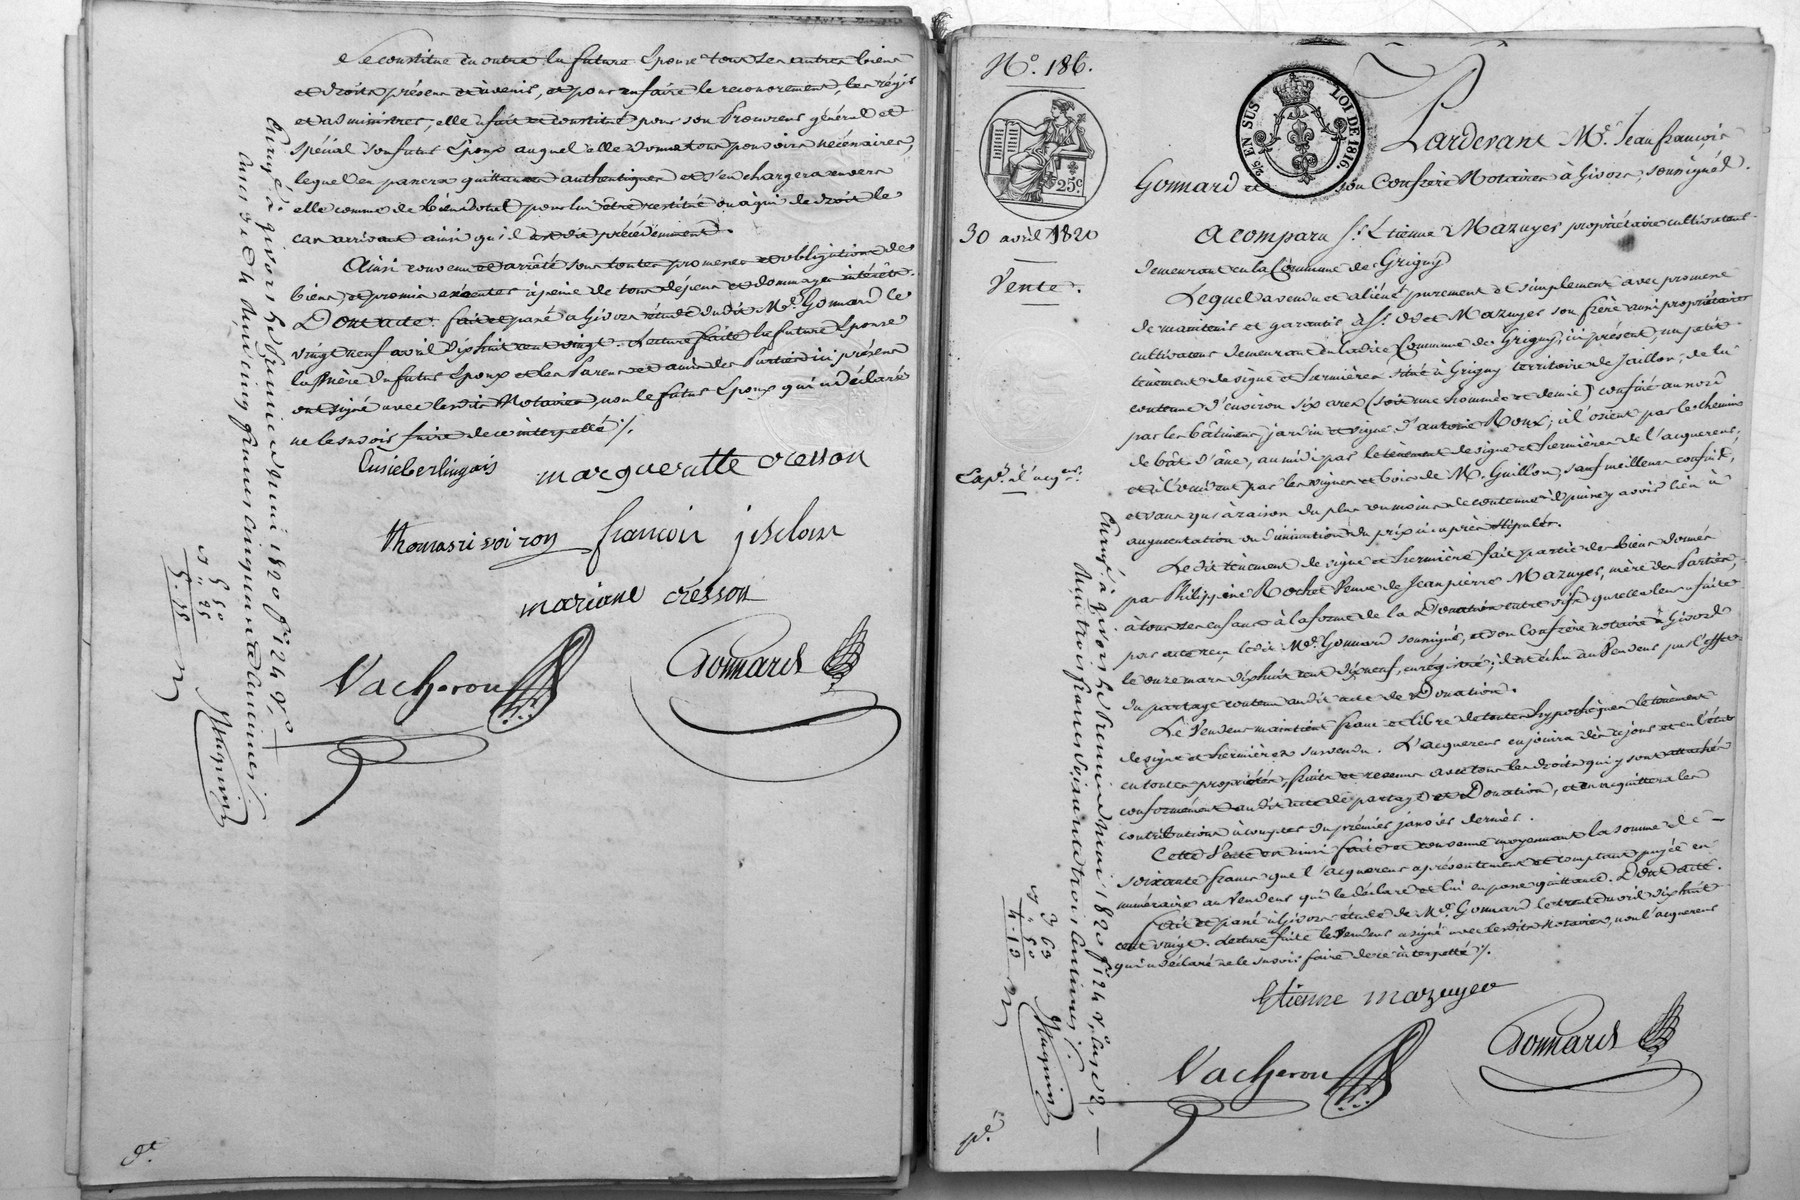 Se constitue en outre la future Epouse tous ses autres biens
et droits présens et à venir, et pour en faire le recouvrement, les régir
et administrer, elle a fait et constitué pour son Procureur général et
spécial son futur Epoux auquel elle donne tous pouvoirs nécessaires,
lequel en passera quittances authentiques et s'en chargera envers
elle comme de bien dotal pour lui être restitué ou à qui de droit le
cas arrivant ainsi qu'il est dit précédemment.
Ainsi convenu et arrêté sous toutes promesses et obligations de
biens, et promis exécuter à peine de tous dépens et dommages intérêts.
Dont acte. fait et passé à Givors étude dudit Me. Gonnard le
vingt neuf avril dix huit cent vingt. Lecture faite la future Epouse
la Mère du futur Epoux et les Parens et amis des Parties ici présens
ont signé avec lesdits Notaires, non le futur Epoux qui a déclaré
ne le savoir faire de ce interpellé ./.
marguerutte cresson
thomas ri voiron françois
mariane cresson
Vacheron Gonnard
Enregé. à Givors le premier mai 1820 fo. 124 Vo.
Reçu cinq francs cinquante centimes
5 50
" 55
Magnin
No. 186.
25c
25c. EN SUS
LOI DE 1816.
Pardevant Me. Jean françois
Gonnard et son Confrère Notaires à Givors, soussignés.
30 avril 1820
Vente.
A comparu Sr. Etienne Mazuyer propriétaire cultivateur
demeurant en la Commune de Grigny
Lequel a vendu et aliéné purement et simplement avec promesse
de maintenir et garantir à Sr. Mazuyer son frère aussi propriétaire
cultivateur demeurant en ladite Commune de Grigny, ici présent, un petit
tènement de vigne et hermières situé à Grigny territoire de Jaillon, de la
contenue d'environ six ares (soit une hommée et demie) confiné au nord
par les bâtimens, jardin et vigne d'antoine Roux; à l'orient par le chemin
de bât d'âne, au midi par le tènement de vigne et hermières de l'acquereur;
et à l'occident par les vignes et bois de Mr. Guillon, sauf meilleurs confins,
et sans qu'à raison du plus ou moins de contenue il puisse y avoir lieu à
augmentation ou diminution du prix ci-après stipulé.
Exp. à l'acqr.
Ledit tènement de vigne et hermière fait partie des biens donnés
par Philippine Rochet Veuve de Jean pierre Mazuyer, mère des Parties,
à tous ses enfans à la forme de la Donation entre vifs qu'elle leur a faite
par acte reçu ledit Me. Gonnard soussigné, et son Confrère notaire à Givors
le onze mars dix huit cent dix neuf, enregistré; il est échu au Vendeur par l'effet
du partage contenu audit acte de Donation.
Le Vendeur maintient franc et libre de toutes hypothèques le tènement
de vigne et hermières sus vendu. L'acquereur en jouira dès ce jour et en l'état
en toutes propriétés, fruits et revenus avec tous les droits qui y sont attachés
conformément audit acte de partage et Donation, et en acquittera les
contributions à compter du premier janvier dernier.
Cette Vente est ainsi faite et convenue moyennant la somme de
soixante francs que l'acquereur a présentement et comptant payée en
numéraire au Vendeur qui le déclare et lui en passe quittance. Dont acte.
Fait et passé à Givors étude de Me. Gonnard le trente avril dix huit
cent vingt. Lecture faite le Vendeur a signé avec lesdits Notaires, non l'acquereur
qui a déclaré ne le savoir faire de ce interpellé ./.
Etienne mazuyer
Vacheron Gonnard
Enregé. à Givors le premier mai 1820 fo. 124 Vo. Case 2,
Reçu trois francs soixante trois centimes ./.
3 63
" 50
4.13
Magnin